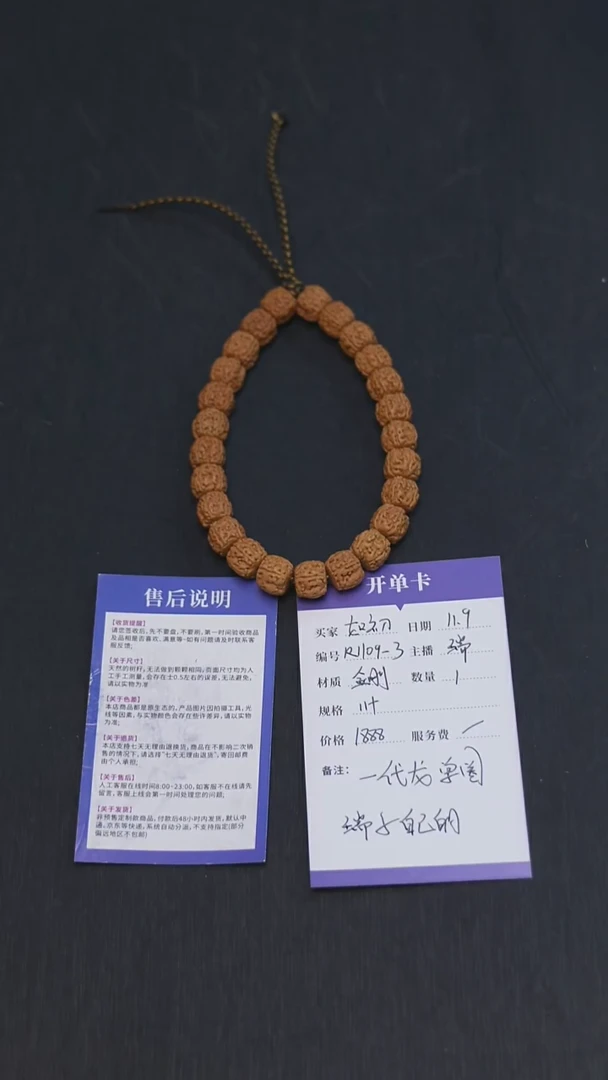 售后说明
【收货提醒】
请您签收后,先不要盘,不要刷,第一时间验收商品
及品相是否喜欢、满意等-如有问题请及时联系客
服反馈;
【关于尺寸】
天然的树籽,无法做到颗颗相同;页面尺寸均为人
工手工测量,会存在±0.5左右的误差,无法避免,
请以实物为准
【关于色差】
本店商品都是原生态的,产品图片因拍摄工具、光
线等因素,与实物颜色会存在些许差异,请以实物
为准;
【关于退货】
本店支持七天无理由退换货,商品在不影响二次销
售的情况下,请选择“七天无理由退货”,寄回邮费
由个人承担;
【关于售后】
人工客服在线时间8:00-23:00,如客服不在线请先
留言,客服上线会第一时间处理您的问题;
【关于发货】
非预售定制款商品,付款后48小时内发货,默认中
通、京东等快递,系统自动分派,不支持指定(部分
偏远地区不包邮)
开单卡
买家 日期 11.9
编号 R1109-3 主播 瑞
材质 金刚 数量 1
规格
价格 1888 服务费
备注: 一代龙单圈
瑞子自己的